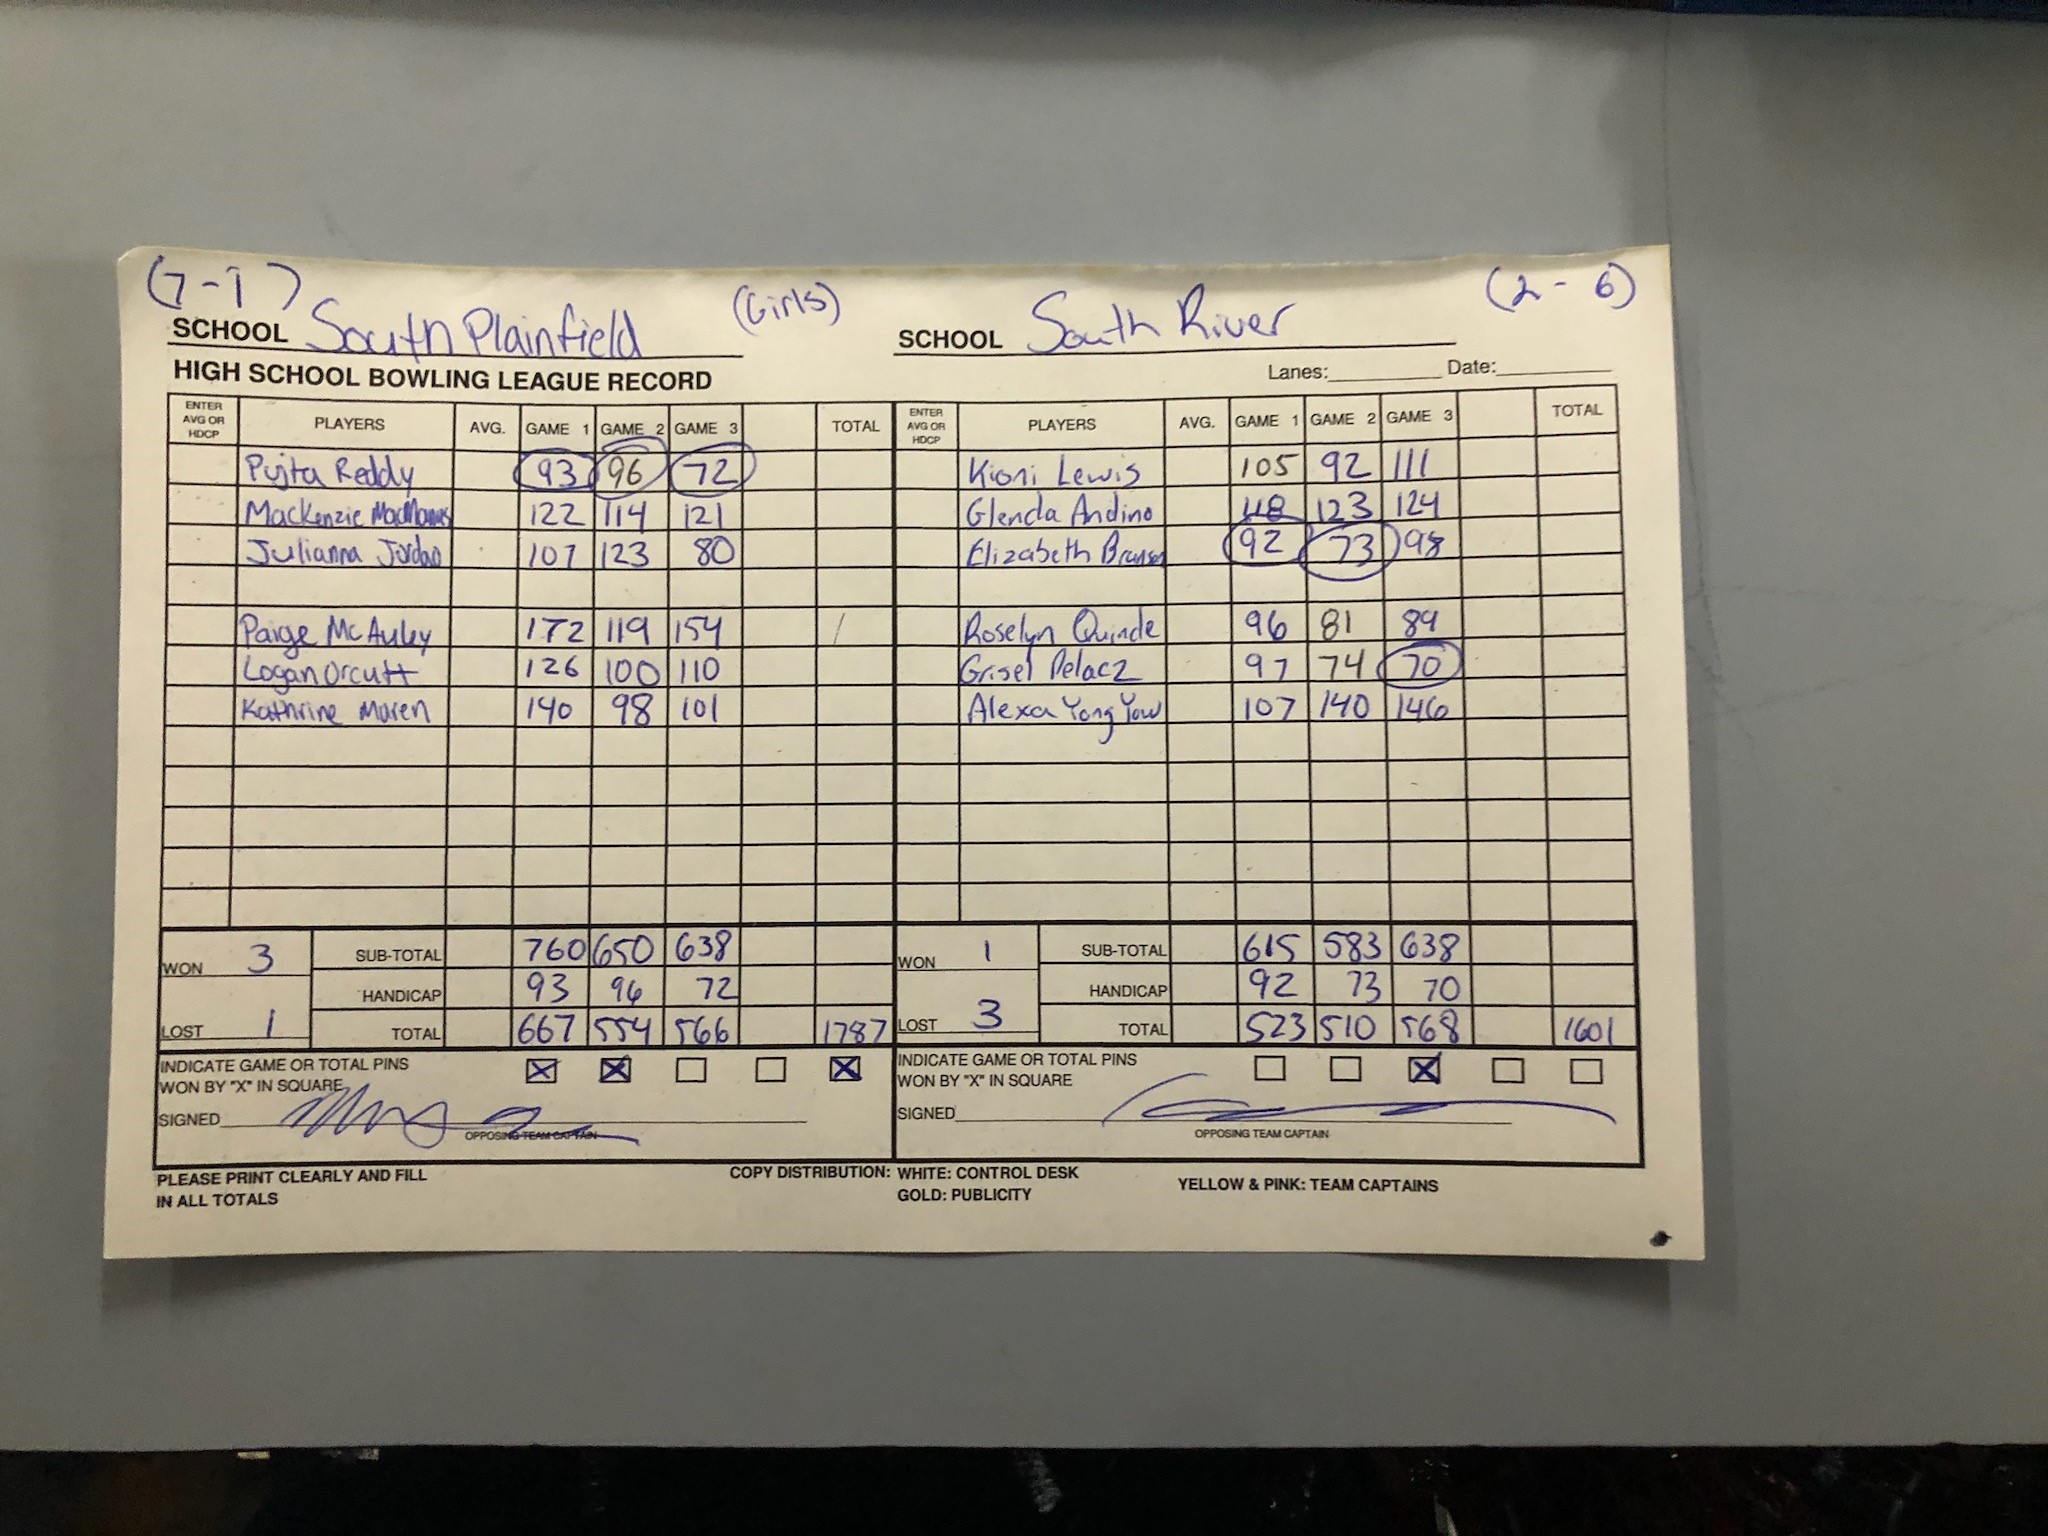 (7-1) (Girls) (2-6)
SCHOOL South Plainfield SCHOOL South River
HIGH SCHOOL BOWLING LEAGUE RECORD Lanes: Date:
ENTER AVG OR HDCP PLAYERS AVG. GAME 1 GAME 2 GAME 3 TOTAL ENTER AVG OR HDCP PLAYERS AVG. GAME 1 GAME 2 GAME 3 TOTAL
Pujta Reddy 93 96 72 Kioni Lewis 105 92 111
Mackenzie MacManus 122 114 121 Glenda Andino 118 123 124
Julianna Jordao 107 123 80 Elizabeth 92 73 98
Paige McAuley 172 119 154 Roselyn Quinde 96 81 89
Logan Orcutt 126 100 110 Grisel Pelaez 97 74 70
Kathrine Moren 140 98 101 Alexa Yong Yow 107 140 146
WON 3 SUB-TOTAL 760 650 638 WON 1 SUB-TOTAL 615 583 638
HANDICAP 93 96 72 HANDICAP 92 73 70
LOST 1 TOTAL 667 554 566 1787 LOST 3 TOTAL 523 510 568 1601
INDICATE GAME OR TOTAL PINS X X X INDICATE GAME OR TOTAL PINS X
WON BY "X" IN SQUARE WON BY "X" IN SQUARE
SIGNED SIGNED
OPPOSING TEAM CAPTAIN OPPOSING TEAM CAPTAIN
PLEASE PRINT CLEARLY AND FILL COPY DISTRIBUTION: WHITE: CONTROL DESK YELLOW & PINK: TEAM CAPTAINS
IN ALL TOTALS GOLD: PUBLICITY